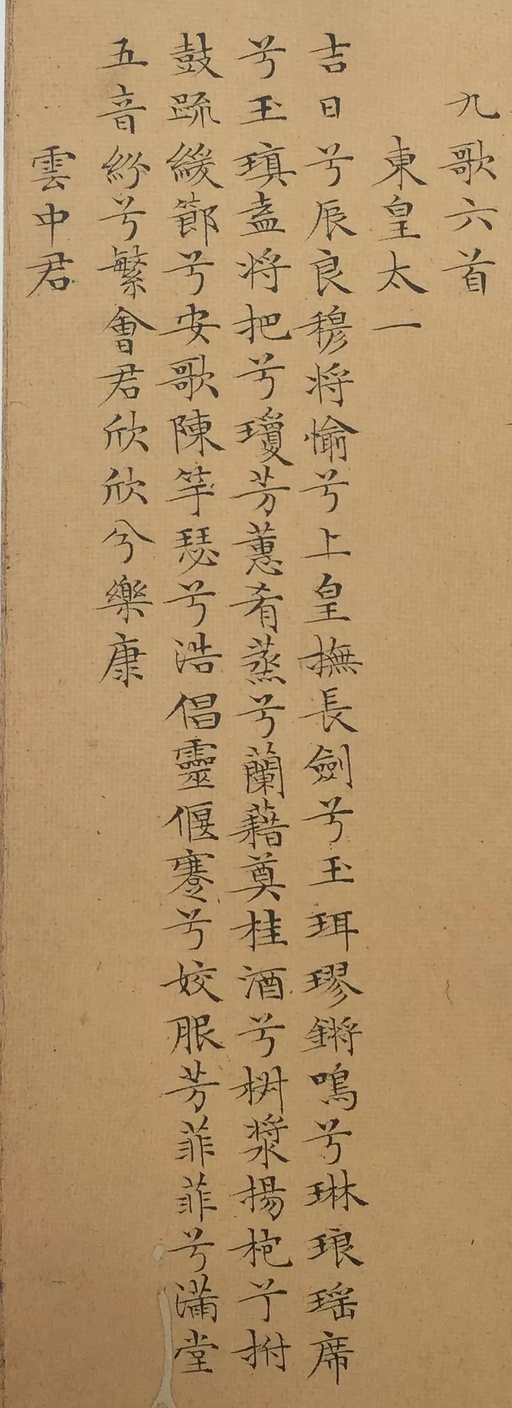 九歌六首
東皇太一
吉日兮辰良穆将愉兮上皇撫長劍兮玉珥璆鏘鳴兮琳琅瑶席
兮玉瑱盍将把兮瓊芳蕙肴蒸兮蘭藉奠桂酒兮椒漿揚枹兮拊
鼓疏緩節兮安歌陳竽瑟兮浩倡靈偃蹇兮姣服芳菲菲兮滿堂
五音紛兮繁會君欣欣兮樂康
雲中君